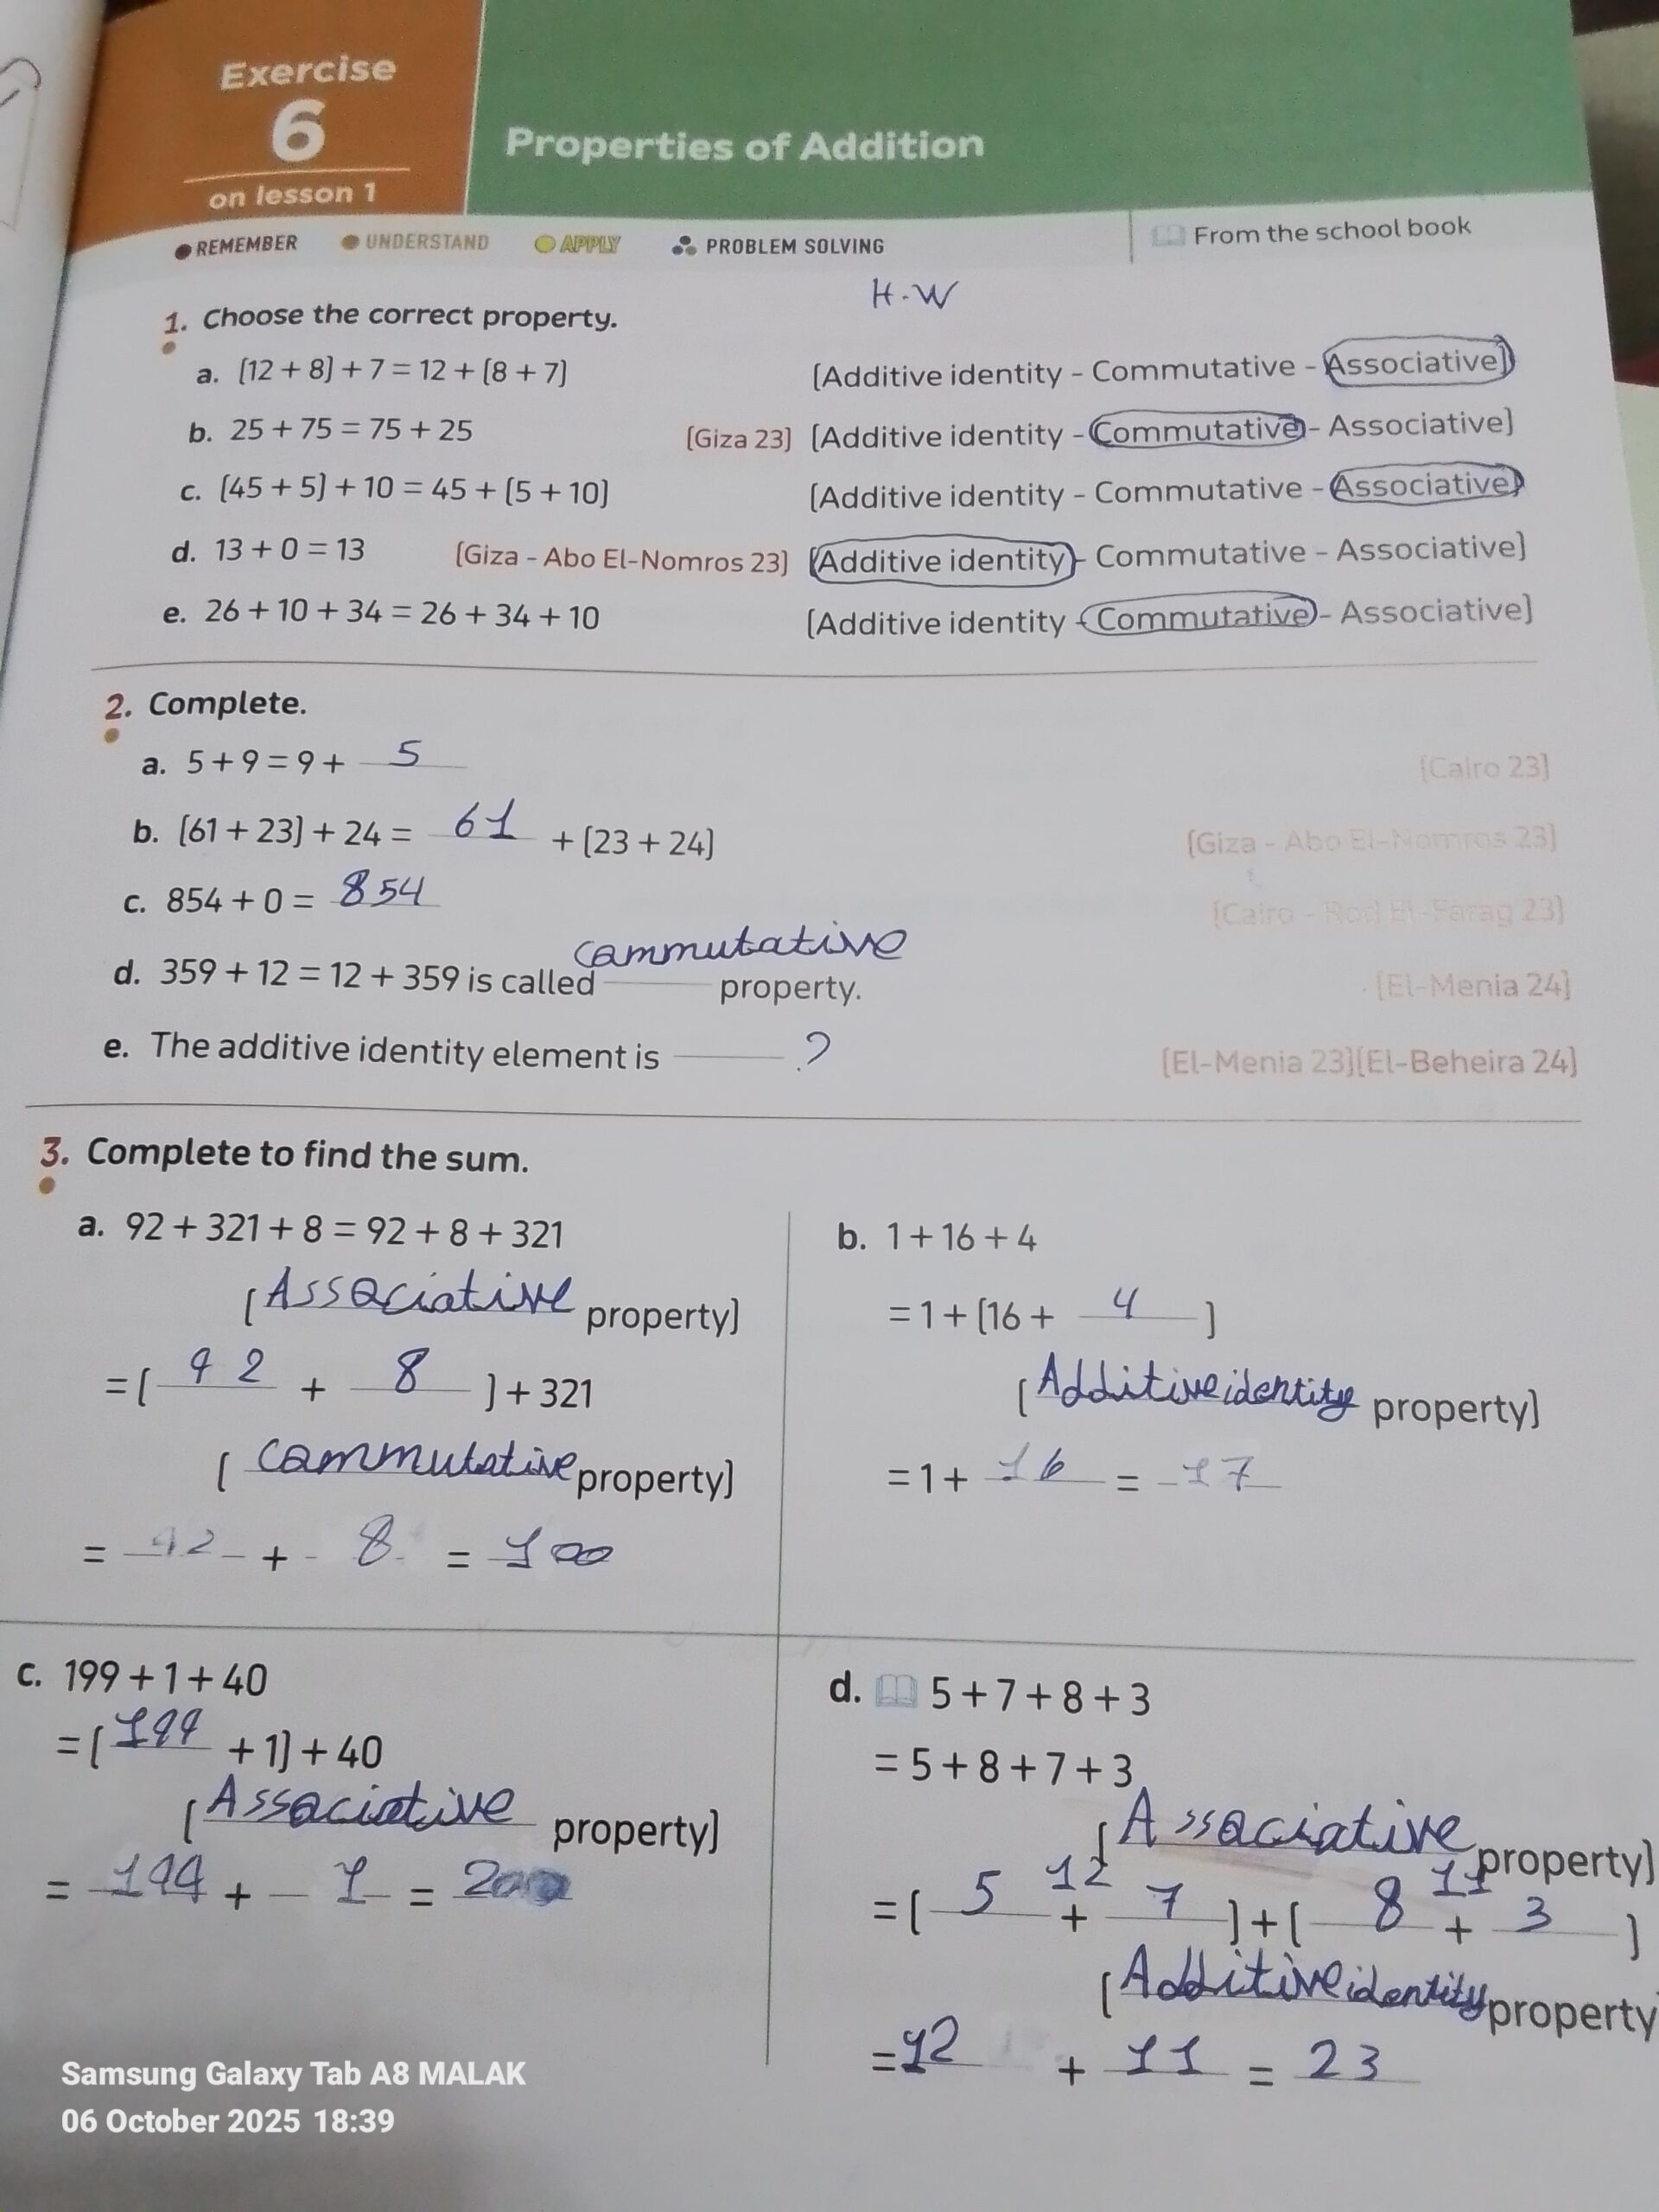 Exercise
6
on lesson 1
Properties of Addition
REMEMBER UNDERSTAND APPLY PROBLEM SOLVING From the school book
H.W
1. Choose the correct property.
a. (12 + 8) + 7 = 12 + (8 + 7) (Additive identity – Commutative – Associative)
b. 25 + 75 = 75 + 25 (Giza 23) (Additive identity – Commutative – Associative)
c. (45 + 5) + 10 = 45 + (5 + 10) (Additive identity – Commutative – Associative)
d. 13 + 0 = 13 (Giza – Abo El-Nomros 23) (Additive identity – Commutative – Associative)
e. 26 + 10 + 34 = 26 + 34 + 10 (Additive identity – Commutative – Associative)
2. Complete.
a. 5 + 9 = 9 + 5 (Cairo 23)
b. (61 + 23) + 24 = 61 + (23 + 24) (Giza – Abo El-Nomros 23)
c. 854 + 0 = 854 (Cairo – Rod El-Farag 23)
d. 359 + 12 = 12 + 359 is called cammutative property. (El-Menia 24)
e. The additive identity element is ? (El-Menia 23)(El-Beheira 24)
3. Complete to find the sum.
a. 92 + 321 + 8 = 92 + 8 + 321
(Associative property)
= (92 + 8) + 321
(cammutative property)
= 92 + 8 = 100
b. 1 + 16 + 4
= 1 + (16 + 4)
(Additive identity property)
= 1 + 16 = 17
c. 199 + 1 + 40
= (199 + 1) + 40
(Assaciative property)
= 199 + 1 = 200
d. 5 + 7 + 8 + 3
= 5 + 8 + 7 + 3
(Assaciative property)
12 11
= (5 + 7) + (8 + 3)
(Additive identity property
= 12 + 11 = 23
Samsung Galaxy Tab A8 MALAK
06 October 2025 18:39